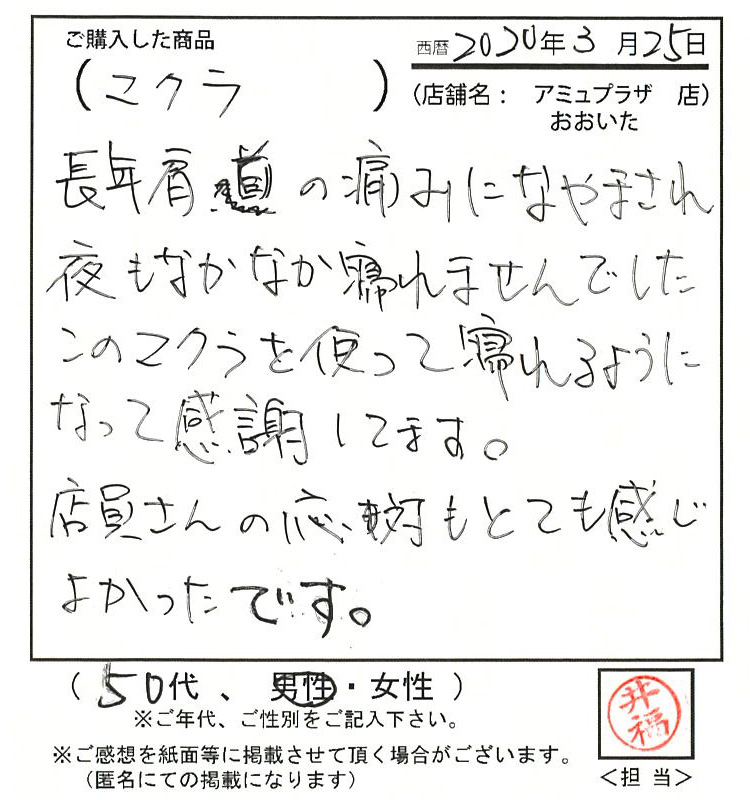 ご購入した商品
西暦2020年3月25日
(マクラ)
(店舗名： アミュプラザ 店)
おおいた
長年肩の痛みになやまされ
夜もなかなか寝れませんでした
このマクラを使って寝れるように
なって感謝してます。
店員さんの応対もとても感じ
よかったです。
(50代、男性・女性)
※ご年代、ご性別をご記入下さい。
※ご感想を紙面等に掲載させて頂く場合がございます。
(匿名にての掲載になります)
井福
＜担 当＞